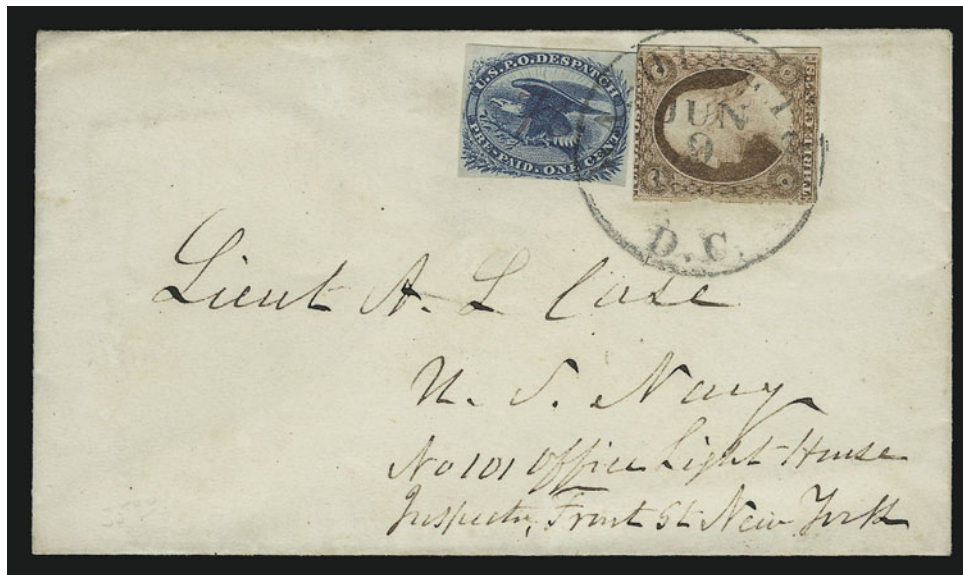 U.S.P.O. DESPATCH
PRE-PAID. ONE CENT
THREE CENTS
JUN
9
D.C.
Lieut A. L Case
U. S. Navy
No 101 Office Light-House
Inspector, Front St New York